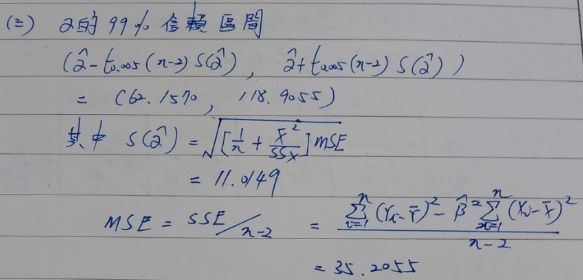 (三) α的 99% 信賴區間
(α̂ - t₀.₀₀₅(n-2) S(α̂) , α̂ + t₀.₀₀₅(n-2) S(α̂) )
= (62.1570 , 118.9055)
其中 S(α̂) = √([1/n + x̄²/SSx] MSE)
= 11.0149
MSE = SSE/n-2 = (∑ᵢ₌₁ⁿ (Yᵢ - Ȳ)² - β̂² ∑ᵢ₌₁ⁿ (Xᵢ - x̄)²) / n-2
= 35.2055